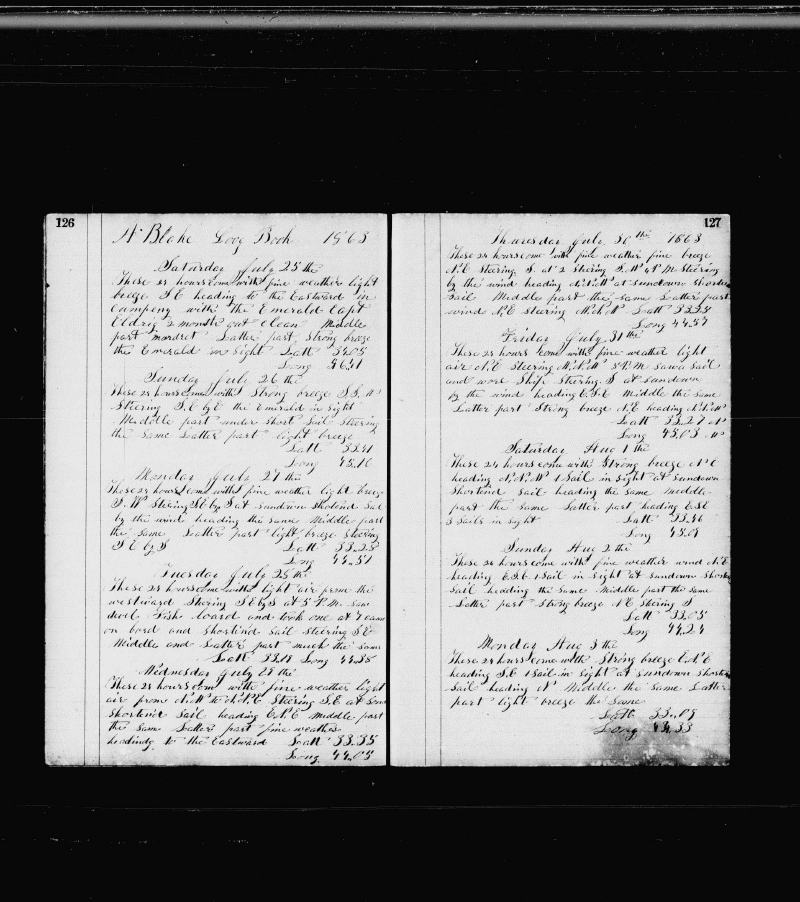 126
H Blake Loog Book 1863
Saturday July 25 the
These 24 hours come with fine weather light
breeze S E heading to the Eastward in
Company with the Emerald Capt
Eldrig 2 month out Clean Middle
part modret Latter part Strong breeze
the Emerald in Sight Latt 34.05
Long
Sunday July 26 the
These 24 hours come with Strong breeze S.S.W
Steering S.E by E the Emerald in sight
Middle part under short Sail steering
the same Latter part light breeze
Latt 33.41
Long 45.16
Monday July 27 the
These 24 hours come with fine weather light breeze
S.W Stering S E by S at sundown Shotend Sail
by the wind heading the same Middle part
the same Latter part light breze Steering
S E by S Latt 33.28
Long 44.51
Tuesday July 28 the
These 24 hours come with light air from the
westward Stering S E by S at 5 P.M. saw
devil Fish loard and took one at 7 came
on bord and shortend sail steering S E
Middle and Latter part much the same
Latt 33.19 Long 44.38
Wednesday July 29 the
These 24 hours com with fine weather light
air from N.W to N.N.E Steering S.E at Sun
Shortend Sail heading E.N.E middle part
the same Latter part fine weather
heading to the Eastward Latt 33.35
Long 44.05
127
Thuresday July 30 the 1863
These 24 hours come with fine weather fine breeze
N.E Steering S. at 2 Stering S.W 4 P.M Steering
by the wind heading N.N.W at sundown shorten
sail Middle part the same Latter part
wind N.E steering N.N.W Latt 33.28
Long 44.57
Friday July 31 the
These 24 hours come with fine weather light
air N.E Steering N.N.W 5 P.M saw a sail
and wore Ship Steering S at sundown
by the wind heading E.S.E Middle the same
Latter part Strong breeze N.E heading N.N.W
Latt 33.27 N
Long 45.03 W
Saturday Aug 1 the
These 24 hours come with Strong breeze N E
heading N.N.W 1 Sail in sight at Sundown
Shortend Sail heading the same Meddle
part the same Latter part heading E.S.E
3 Sails in sight Latt 33.46
Long 45.09
Sunday Aug 2 the
These 24 hours come with fine weather wind N.E
heading E.S.E 1 Sail in Sight at sundown Shorte
Sail heading the same Middle part the same
Latter part Strong breeze N E Stering S
Latt 33.05
Long 44.24
Monday Aug 3 the
These 24 hours come with Strong breeze E.N.E
heading S.E 1 Sail in sight at sundown shorten
Sail heading N Middle the same Latter
part light breeze the same
Latt 33.09
Long 43.33